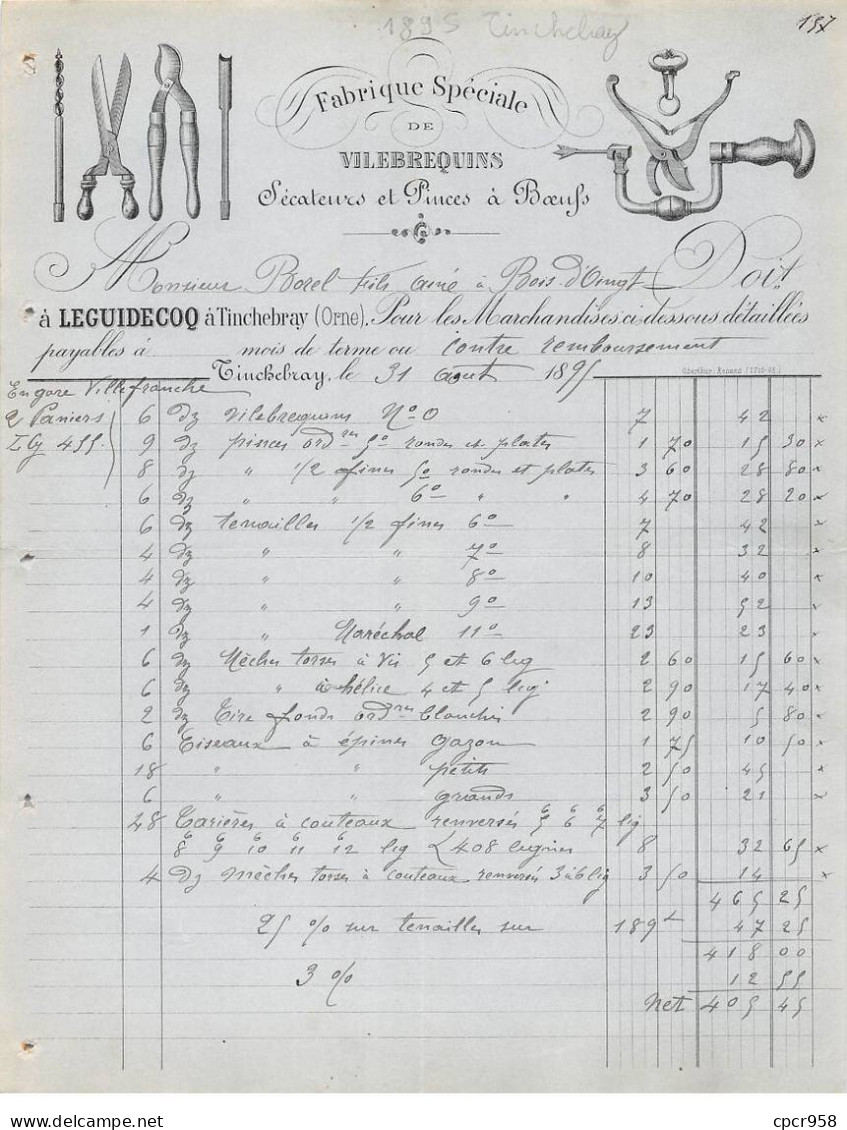 1895 Tinchebray
157
Fabrique Spéciale
DE
VILEBREQUINS
Sécateurs et Pinces à Bœufs
Monsieur Borel fils ainé à Bois-d'Oingt Doit
à LEGUIDECOQ à Tinchebray (Orne), Pour les Marchandises ci-dessous détaillées
payables à mois de terme ou contre remboursement
Tinchebray, le 31 août 1895
Oberthur, Rennes
En gare Villefranche
2 Paniers
LG 455
6 dz vilebrequins N° 0 7 42 x
9 dz pinces ordres 5° rondes et plates 1 70 15 30 x
8 dz " 1/2 fines 5° rondes et plates 3 60 28 80 x
6 dz " " 6° " " 4 70 28 20 x
6 dz tenailles 1/2 fines 6° 7 42 x
4 dz " " 7° 8 32 x
4 dz " " 8° 10 40 x
4 dz " " 9° 13 52 x
1 dz " Maréchal 11° 23 23 x
6 dz Mèches torses à vis 5 et 6 lig 2 60 15 60 x
6 dz " à hélice 4 et 5 lig 2 90 17 40 x
2 dz Tire fonds ordres blanchis 2 90 5 80 x
6 Ciseaux à épines gazon 1 75 10 50 x
18 " " petits 2 50 45 x
6 " " grands 3 50 21 x
48 Tarières à couteaux renversés 5 6 7 lig
6 6 6
6 6 6 6 6
8 9 10 11 12 lig 408 lignes 8 32 65 x
4 dz mèches torses à couteaux renversés 3 à 6 lig 3 50 14 x
465 25
25 % sur tenailles sur 189 47 25
418 00
3 % 12 55
Net 405 45
© cpcr958